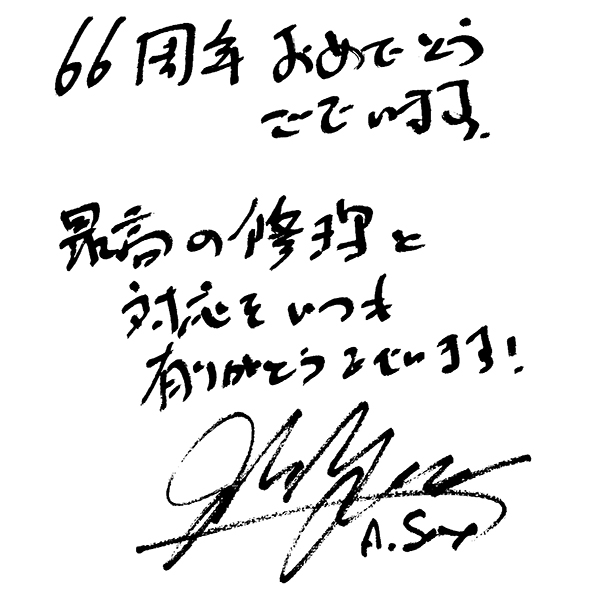 66周年 おめでとう
ございます.
最高の修理と
対応をいつも
有りがとうございます!
A. Sax